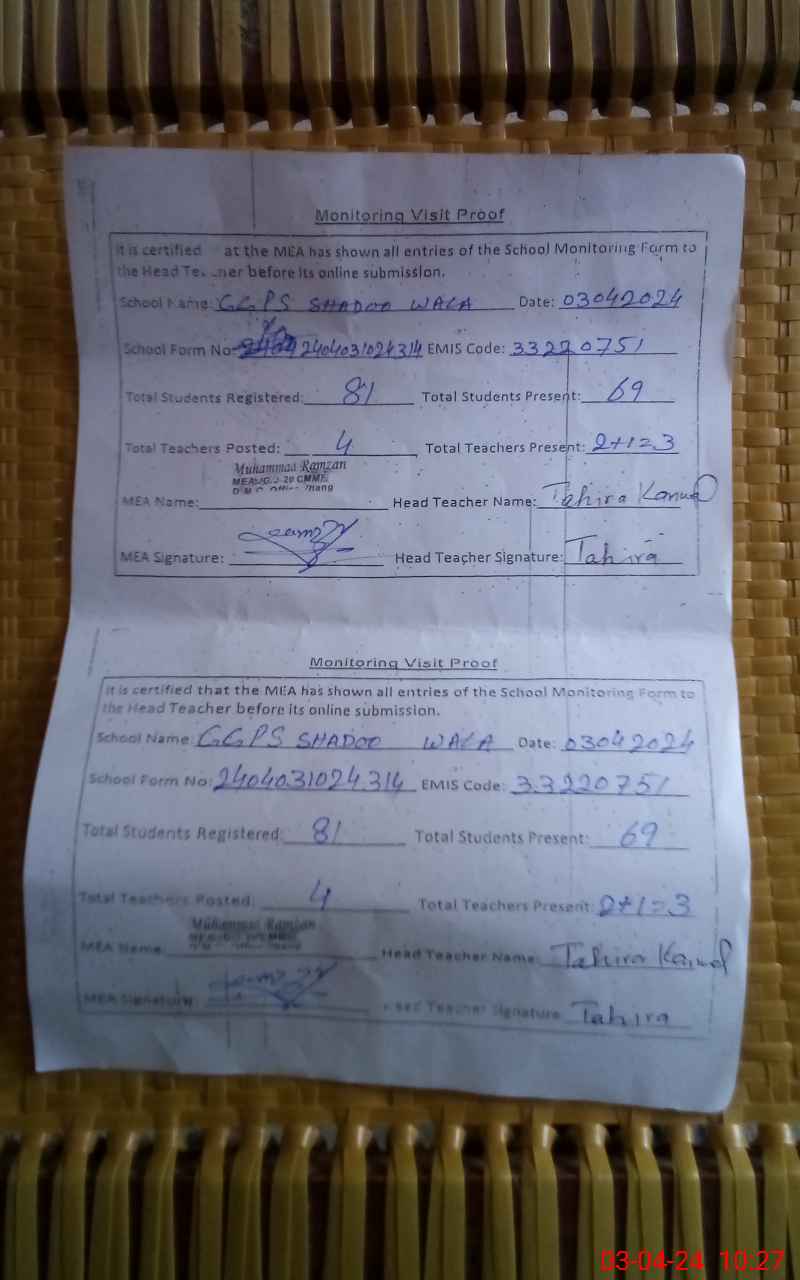 Monitoring Visit Proof
It is certified at the MEA has shown all entries of the School Monitoring Form to
the Head Te cher before its online submission.
School Name: GGPS SHADOO WALA Date: 03042024
School Form No: 2404031024314 EMIS Code: 33220751
Total Students Registered: 81 Total Students Present: 69
Total Teachers Posted: 4 Total Teachers Present: 2+1=3
Muhammad Ramzan
MEA Name: Head Teacher Name: Tahira Kanwal
MEA Signature: Head Teacher Signature: Tahira
Monitoring Visit Proof
It is certified that the MEA has shown all entries of the School Monitoring Form to
the Head Teacher before its online submission.
School Name: GGPS SHADOO WALA Date: 03042024
School Form No: 2404031024314 EMIS Code: 33220751
Total Students Registered: 81 Total Students Present: 69
Total Teachers Posted: 4 Total Teachers Present: 2+1=3
Muhammad Ramzan
MEA Name: Head Teacher Name: Tahira Kanwal
MEA Signature: Teacher Signature: Tahira
03-04-24 10:27